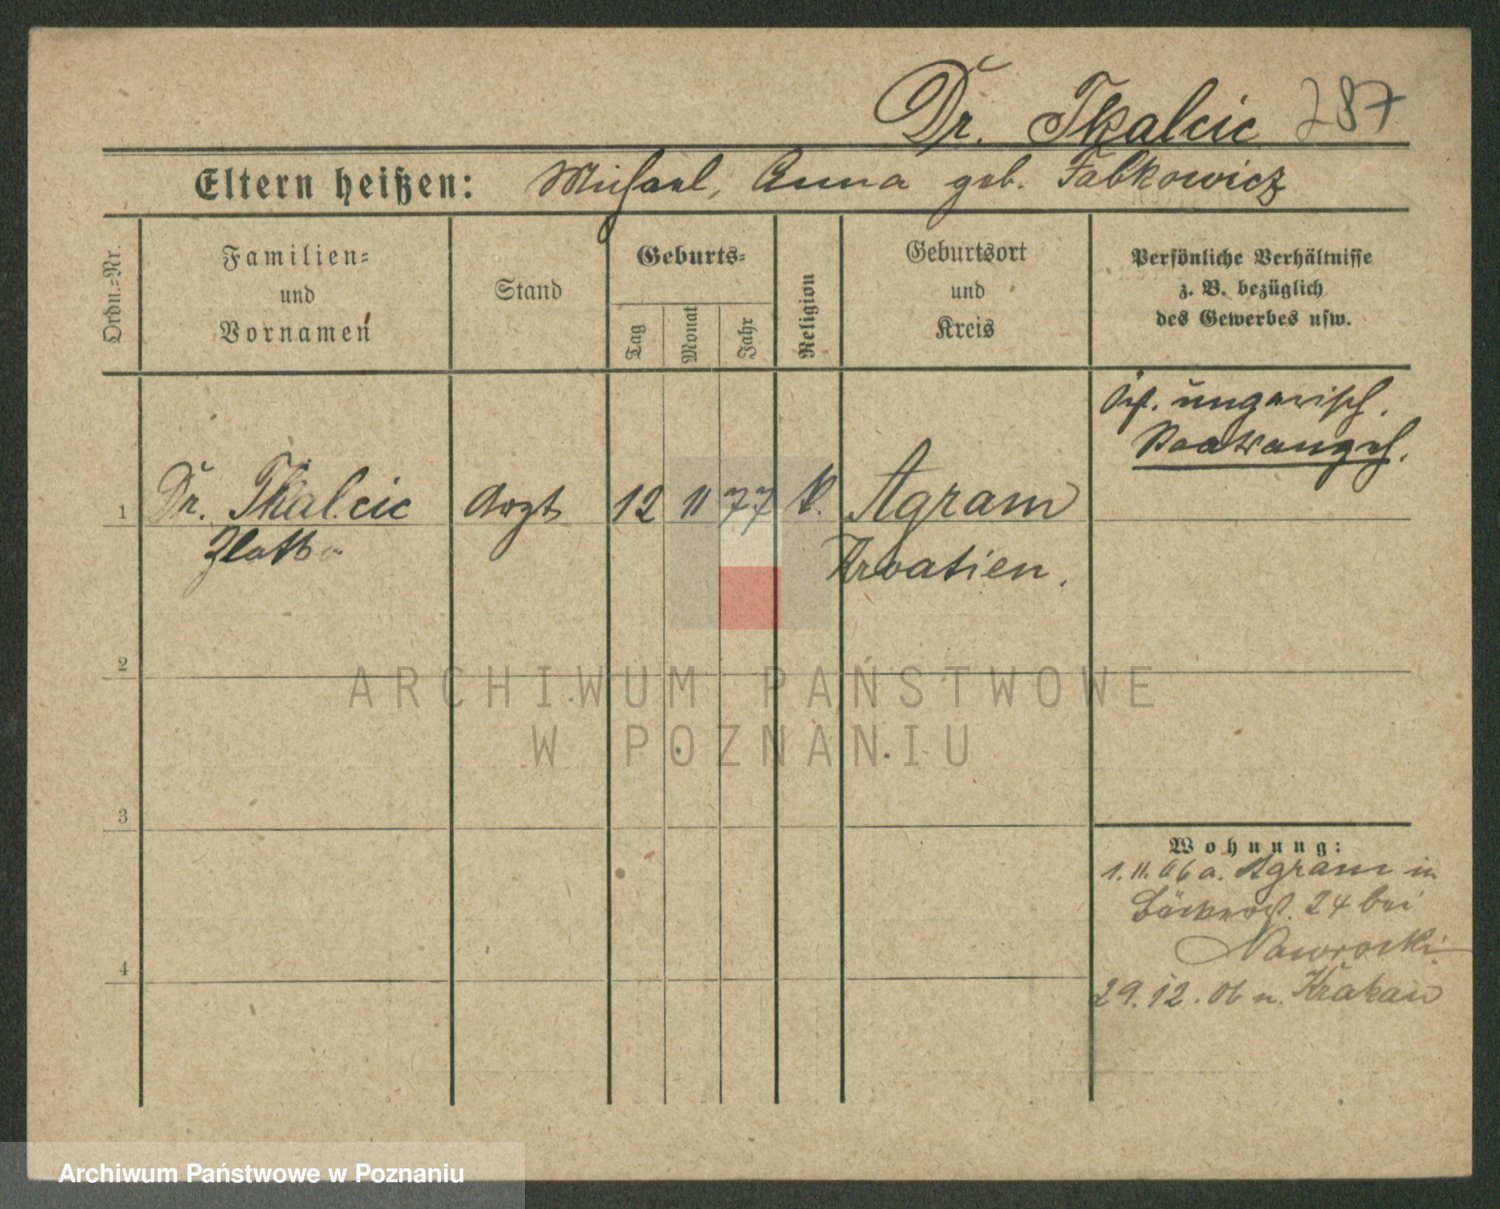 Dr. Tkalcic 287
Eltern heißen: Michael, Anna geb. Fabkowicz
Ordn.-Nr.
Familien-
und
Vornamen
Stand
Geburts-
Tag
Monat
Jahr
Religion
Geburtsort
und
Kreis
Persönliche Verhältnisse
z. B. bezüglich
des Gewerbes usw.
öst. ungarisch.
Staatsangeh.
1 Dr. Tkalcic Arzt 12 11 77 k. Agram
Zlatko Kroatien.
2
ARCHIWUM PAŃSTWOWE
W POZNANIU
3
Wohnung:
1.11.06 a. Agram in
Bäckerst. 24 bei
Nawrocki.
4
29.12.06 n. Krakau
Archiwum Państwowe w Poznaniu